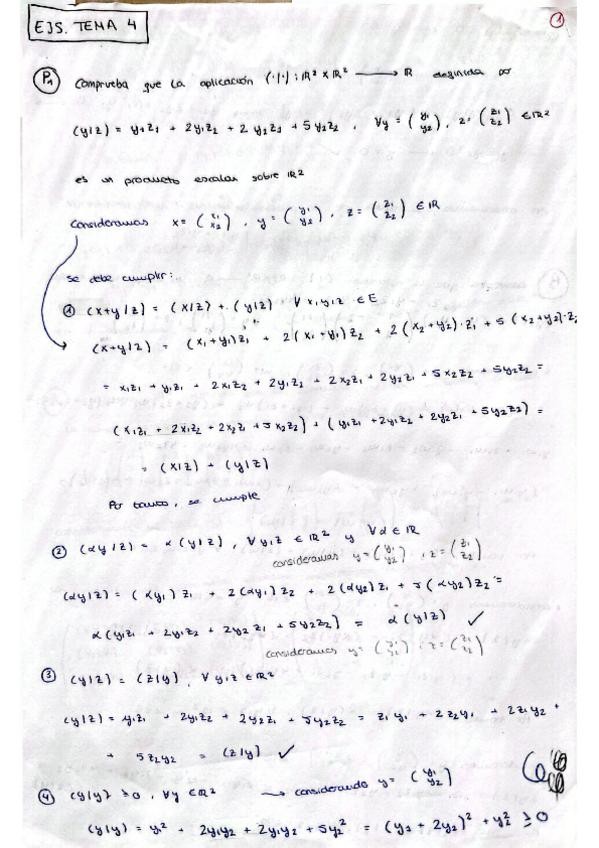 EJS. TEMA 4
1
P1 Comprueba que la aplicación (·|·) : ℝ² × ℝ² ⟶ ℝ definida
(y|z) = y1z1 + 2y1z2 + 2y2z1 + 5y2z2 , ∀y = (y1 y2) , z = (z1 z2) ∈ ℝ²
es un producto escalar sobre ℝ²
Consideramos x = (x1 x2) , y = (y1 y2) , z = (z1 z2) ∈ ℝ
se debe cumplir:
① (x+y|z) = (x|z) + (y|z) ∀ x,y,z ∈ E
(x+y|z) = (x1+y1)z1 + 2(x1+y1)z2 + 2(x2+y2)·z1 + 5(x2+y2)·z2
= x1z1 + y1z1 + 2x1z2 + 2y1z2 + 2x2z1 + 2y2z1 + 5x2z2 + 5y2z2 =
(x1z1 + 2x1z2 + 2x2z1 + 5x2z2) + (y1z1 + 2y1z2 + 2y2z1 + 5y2z2) =
= (x|z) + (y|z)
Por tanto, se cumple
② (αy|z) = α(y|z) , ∀y,z ∈ ℝ² y ∀α ∈ ℝ
consideramos y = (y1 y2) , z = (z1 z2)
(αy|z) = (αy1)z1 + 2(αy1)z2 + 2(αy2)z1 + 5(αy2)z2 =
α(y1z1 + 2y1z2 + 2y2z1 + 5y2z2) = α(y|z) ✓
consideramos y = (y1 y2) , z = (z1 z2)
③ (y|z) = (z|y) , ∀y,z ∈ ℝ²
(y|z) = y1z1 + 2y1z2 + 2y2z1 + 5y2z2 = z1y1 + 2z2y1 + 2z1y2 +
+ 5z2y2 = (z|y) ✓
④ (y|y) ≥ 0 , ∀y ∈ ℝ² → considerando y = (y1 y2)
(y|y) = y1² + 2y1y2 + 2y1y2 + 5y2² = (y1 + 2y2)² + y2² ≥ 0